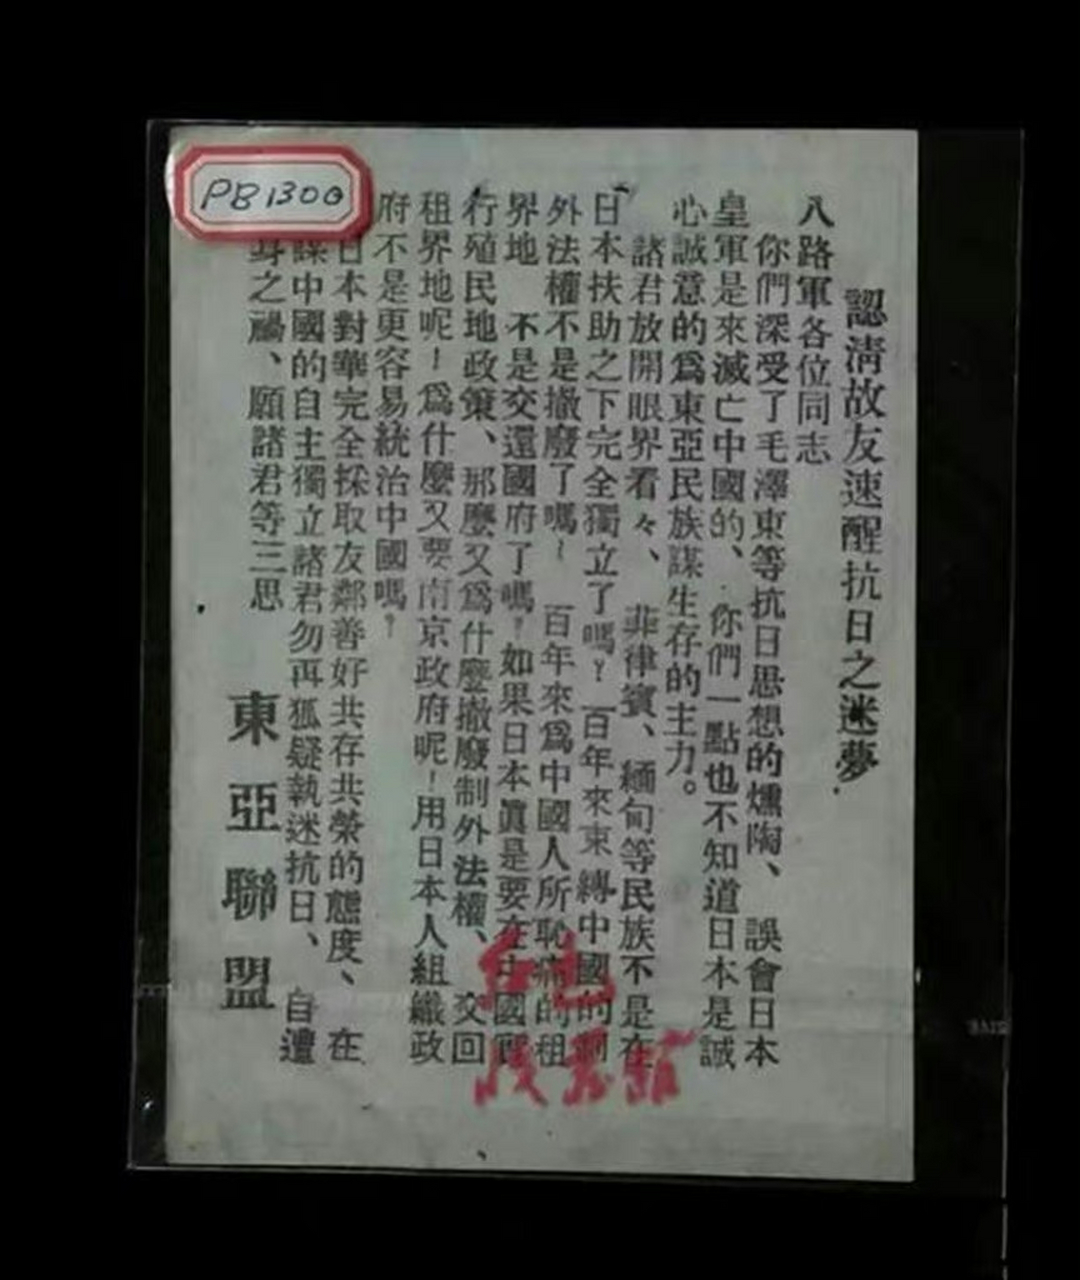 PB1300
認清故友速醒抗日之迷夢
八路軍各位同志
你們深受了毛澤東等抗日思想的燻陶、誤會日本
皇軍是來滅亡中國的、你們一點也不知道日本是誠
心誠意的爲東亞民族謀生存的主力。
諸君放開眼界看々、菲律賓、緬甸等民族不是在
日本扶助之下完全獨立了嗎？百年來束縛中國的制
外法權不是撤廢了嗎？百年來爲中國人所恥痛的租
界地 不是交還國府了嗎？如果日本眞是要在中國實
行殖民地政策、那麼又爲什麼撤廢制外法權、交回
租界地呢！爲什麼又要南京政府呢！用日本人組織政
府不是更容易統治中國嗎？
日本對華完全採取友鄰善好共存共榮的態度、在
謀中國的自主獨立諸君勿再狐疑執迷抗日、自遭
身之禍、願諸君等三思
東亞聯盟
红色